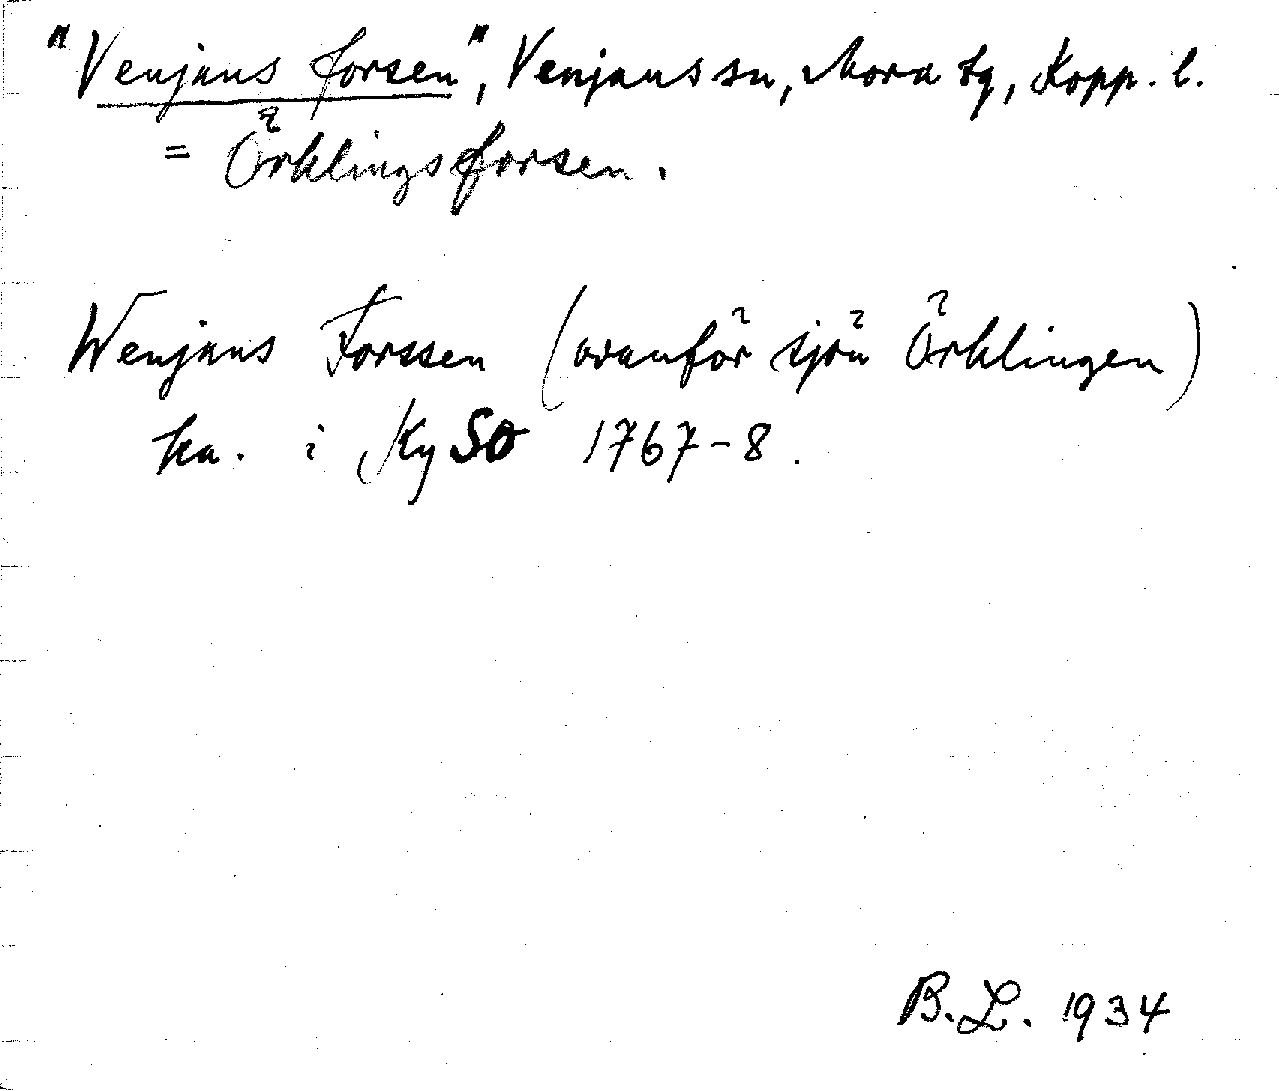 "Venjans forsen", Venjans sn, Mora tg, Kopp. l.
= Örklingsforsen.
Wenjans Forssen (ovanför sjön Örklingen)
ka. i KySo 1767-8.
B.L. 1934